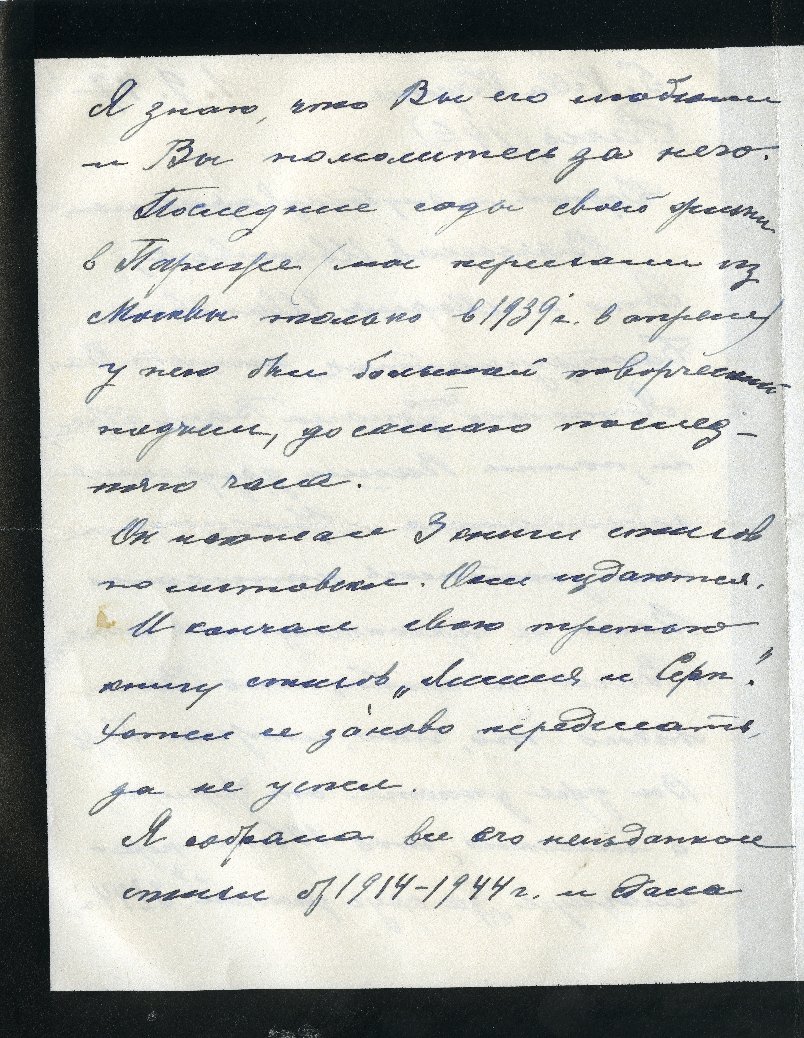 Я знаю, что Вы его любили
и Вы помолитесь за него.
Последние годы своей жизни
в Париже (мы переехали из
Москвы только в 1939 г. в апреле)
у него был большой творческий
подъем, до самого послед-
няго часа.
Он написал 3 книги стихов
по литовски. Они издаются.
И кончал свою третью
книгу стихов „Лилия и Серп".
Хотел ее заново переделать,
да не успел.
Я собрала все его неизданные
стихи от 1914-1944 г. и дала